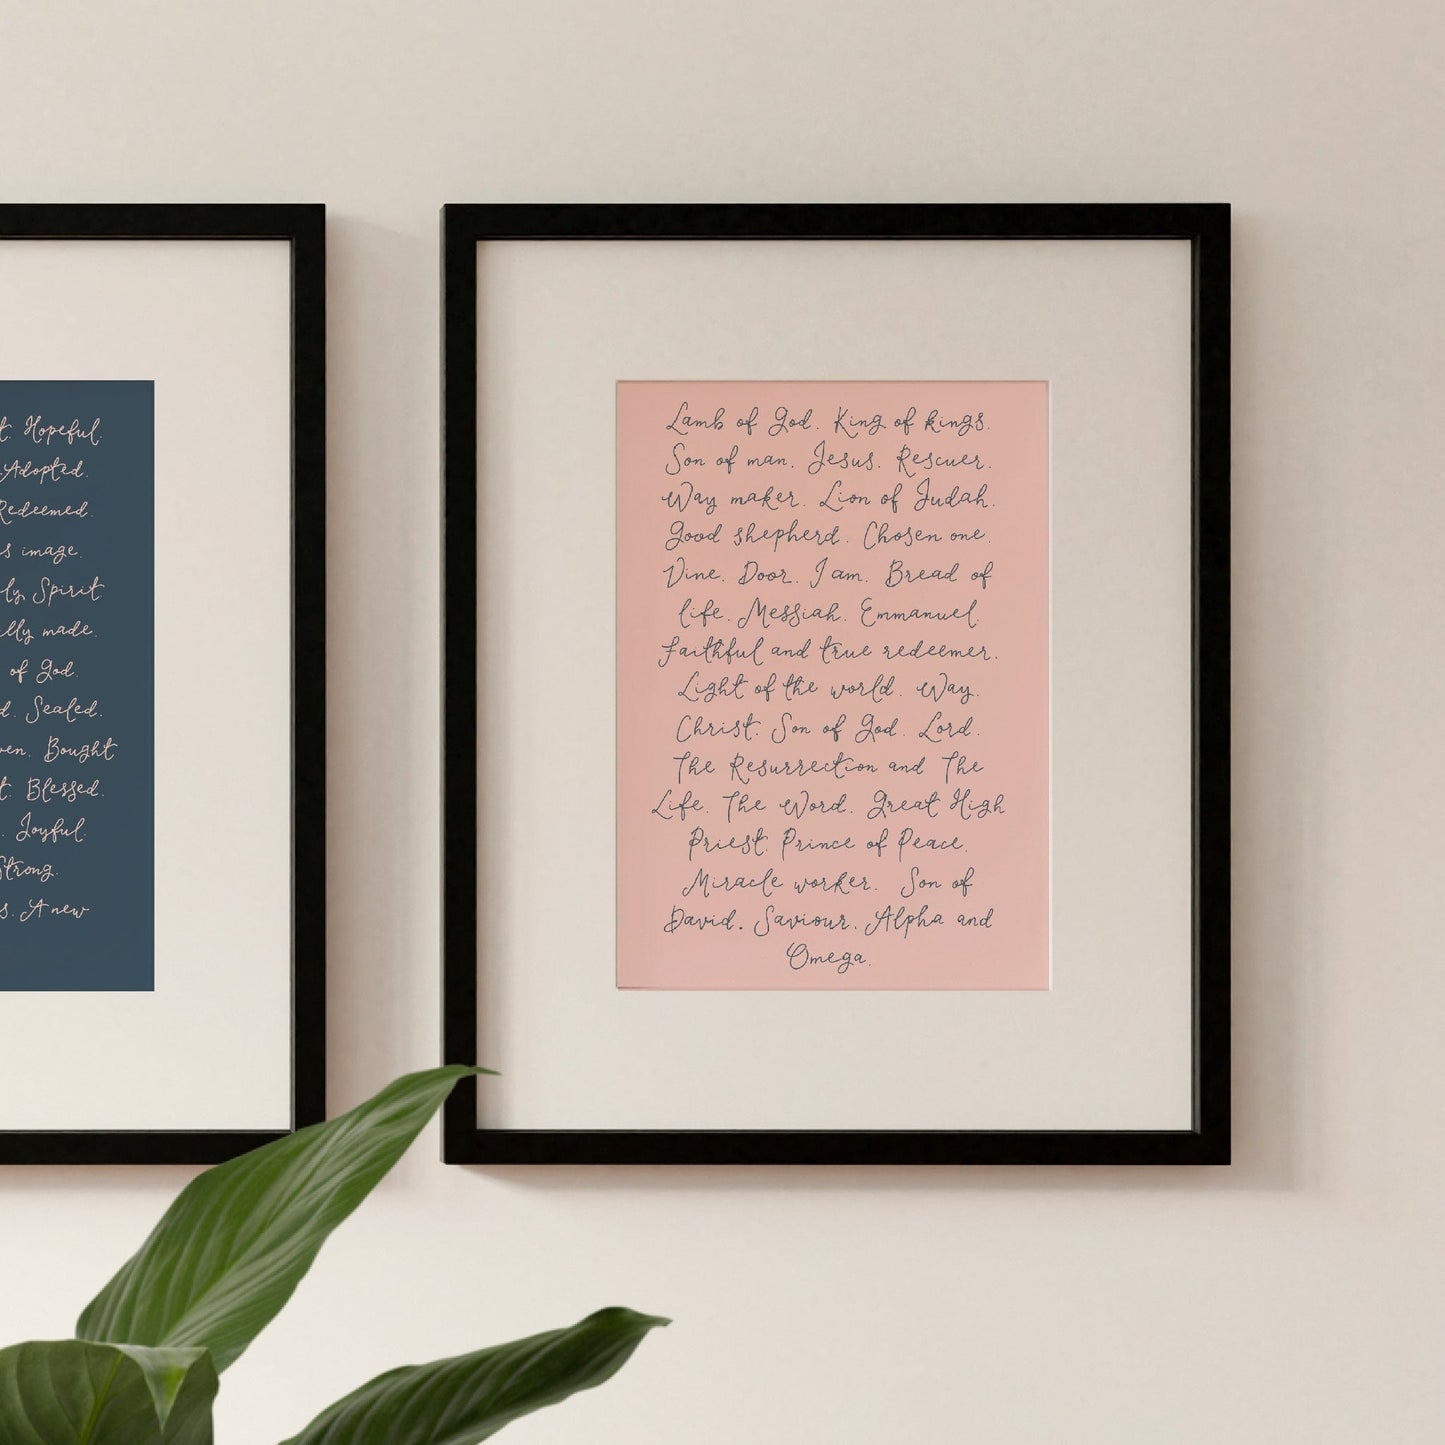 Hopeful.
Adopted.
Redeemed.
image.
Spirit
made.
of God.
Sealed.
Bought
Blessed.
Joyful.
Strong.
A new
Lamb of God. King of kings.
Son of man. Jesus. Rescuer.
Way maker. Lion of Judah.
Good shepherd. Chosen one.
Vine. Door. I am. Bread of
life. Messiah. Emmanuel.
Faithful and true redeemer.
Light of the world. Way.
Christ. Son of God. Lord.
The Resurrection and The
Life. The Word. Great High
Priest. Prince of Peace.
Miracle worker. Son of
David. Saviour. Alpha and
Omega.